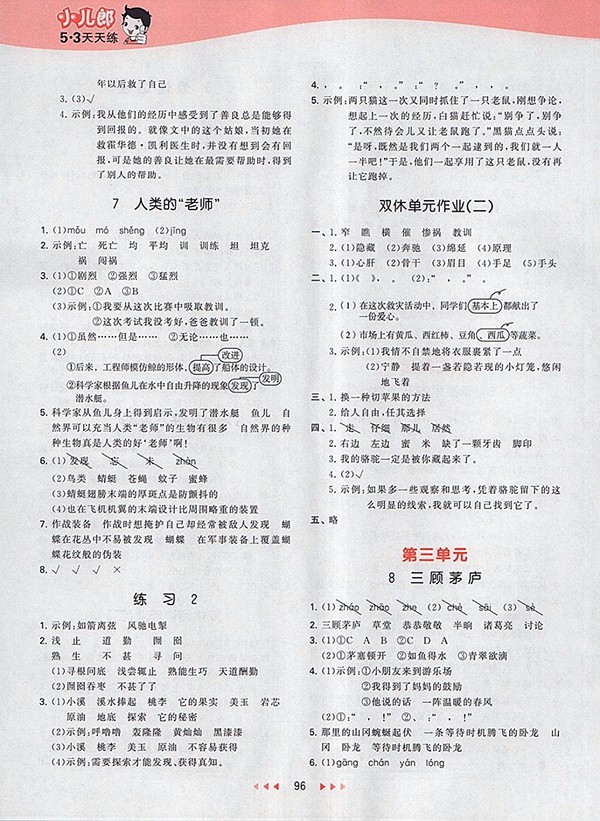 小儿郎
5·3天天练
年以后救了自己
3. (3)√
4. 示例：我从他们的经历中感受到了善良总是能够得
到回报的。就像文中的这个姑娘，当初她在
救霍华德·凯利医生时，并没有想到会有回
报，可是她的善良让她在最需要帮助时，得到
了别人的帮助。
7 人类的“老师”
1. (1)mǒu mó shěng (2)jīng
2. 示例：亡 死亡 均 平均 训 训练 坦 坦克
祸 闯祸
3. (1)①剧烈 ②强烈 ③猛烈
(2)①C ②A ③B
(3)示例：①我要从这次比赛中吸取教训。
②这次考试我没考好，爸爸教训了一顿。
4. (1)①虽然……但是…… ②无论……也……
(2)
改进
①后来，工程师模仿鲸的形体，提高了船体的设计。
发明
②科学家根据鱼儿在水中自由升降的现象发现了
潜水艇。
5. 科学家从鱼儿身上得到启示，发明了潜水艇 鱼儿 自
然界可以充当人类“老师”的生物有很多 自然界的种
种生物真是人类的好‘老师’啊！
6. (1)发现 忘 未 zhàn
(2)鸟类 蜻蜓 苍蝇 蚊子 蜜蜂
(3)蜻蜓翅膀末端的厚斑点是防颤抖的
(4)也在飞机机翼的末端设计比周围略重的装置
7. 作战装备 作战时想掩护自己却经常被敌人发现 蝴
蝶在花丛中不易被发现 蝴蝶 在军事装备上覆盖蝴
蝶花纹般的伪装
8. √ √ √ ×
练习 2
1. 示例：如箭离弦 风驰电掣
2. 浅 止 道 勤 囫 囵
熟 生 不 甚 寻 问
(1)寻根问底 浅尝辄止 熟能生巧 天道酬勤
(2)囫囵吞枣 不甚了了
3. (1)小溪 溪水捧起 桃李 它的果实 美玉 岩芯
原油 地底 探索 它的秘密
(2)示例：呼噜噜 轰隆隆 黄灿灿 黑漆漆
(3)小溪 桃李 美玉 原油 不容易得到
(4)示例：需要探索才能发现、获得真知。
4. ， 。 ： “ ， 。” ： “ ？ ” ， 。
5. 示例：两只猫这一次又同时抓住了一只老鼠，刚想争论，
想起上一次的经历，白猫赶忙说：“别争了，别争
了，不然待会儿又让老鼠跑了。”黑猫点点头说：
“是呀，既然是我们两个一起逮到的，我们就一人
一半吧！”于是，他们一起享用了这只老鼠，没有再
让它跑掉。
双休单元作业(二)
一、1. 窄 瞧 横 催 惨祸 教训
2. (1)隐藏 (2)奔驰 (3)绵延 (4)原理
3. (1)心肝 (2)骨干 (3)眉目 (4)手足 (5)手头
二、1. (1)《 》， 。 (2)：“ ，” ， “ 。”
2. (1)在这次救灾活动中，同学们基本上都献出了
一份爱心。
(2)市场上有黄瓜、西红柿、豆角、西瓜等蔬菜。
3. 示例：(1)我情不自禁地将衣服裹紧了一点
(2)宁静 提着一盏若隐若现的小灯笼，悠闲
地飞着
三、1. 换一种切苹果的方法
2. 给人自由，任其选择
四、1. 走 仔细 那儿 居然
2. 右边 左边 蜜 米 缺了一颗牙齿 脚印
3. 我的骆驼一定是被你藏起来了。
4. (2)√
5. 示例：如果多一些观察和思考，凭着骆驼留下的这
么明显的线索，我就可以自己找到它了。
五、略
第三单元
8 三顾茅庐
1. (1)zháo zhāo zhe (2)chē sāi (3)sè
2. 三顾茅庐 草堂 恭恭敬敬 半晌 诸葛亮 讨论
3. (1)①C A B ②C D A
(2)①茅塞顿开 ②如鱼得水 ③青翠欲滴
4. (1)示例：①小朋友来到游乐场
②我得到了妈妈的鼓励
③他说的话 一阵温暖的春风
(2)①“ ， ！” ②“ ， ！”
5. 那里的山冈蜿蜒起伏 一条等待时机腾飞的卧龙 山
冈 卧龙 等待时机腾飞的卧龙
6. (1)gāng chán yán lóng
96